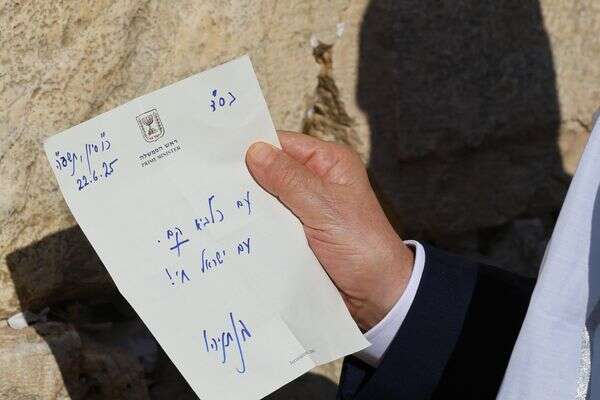 בס"ד
ראש הממשלה
PRIME MINISTER
כ"ו סיון, תשפ"ה
22.6.25
עם כלביא קם.
עם ישראל חי!